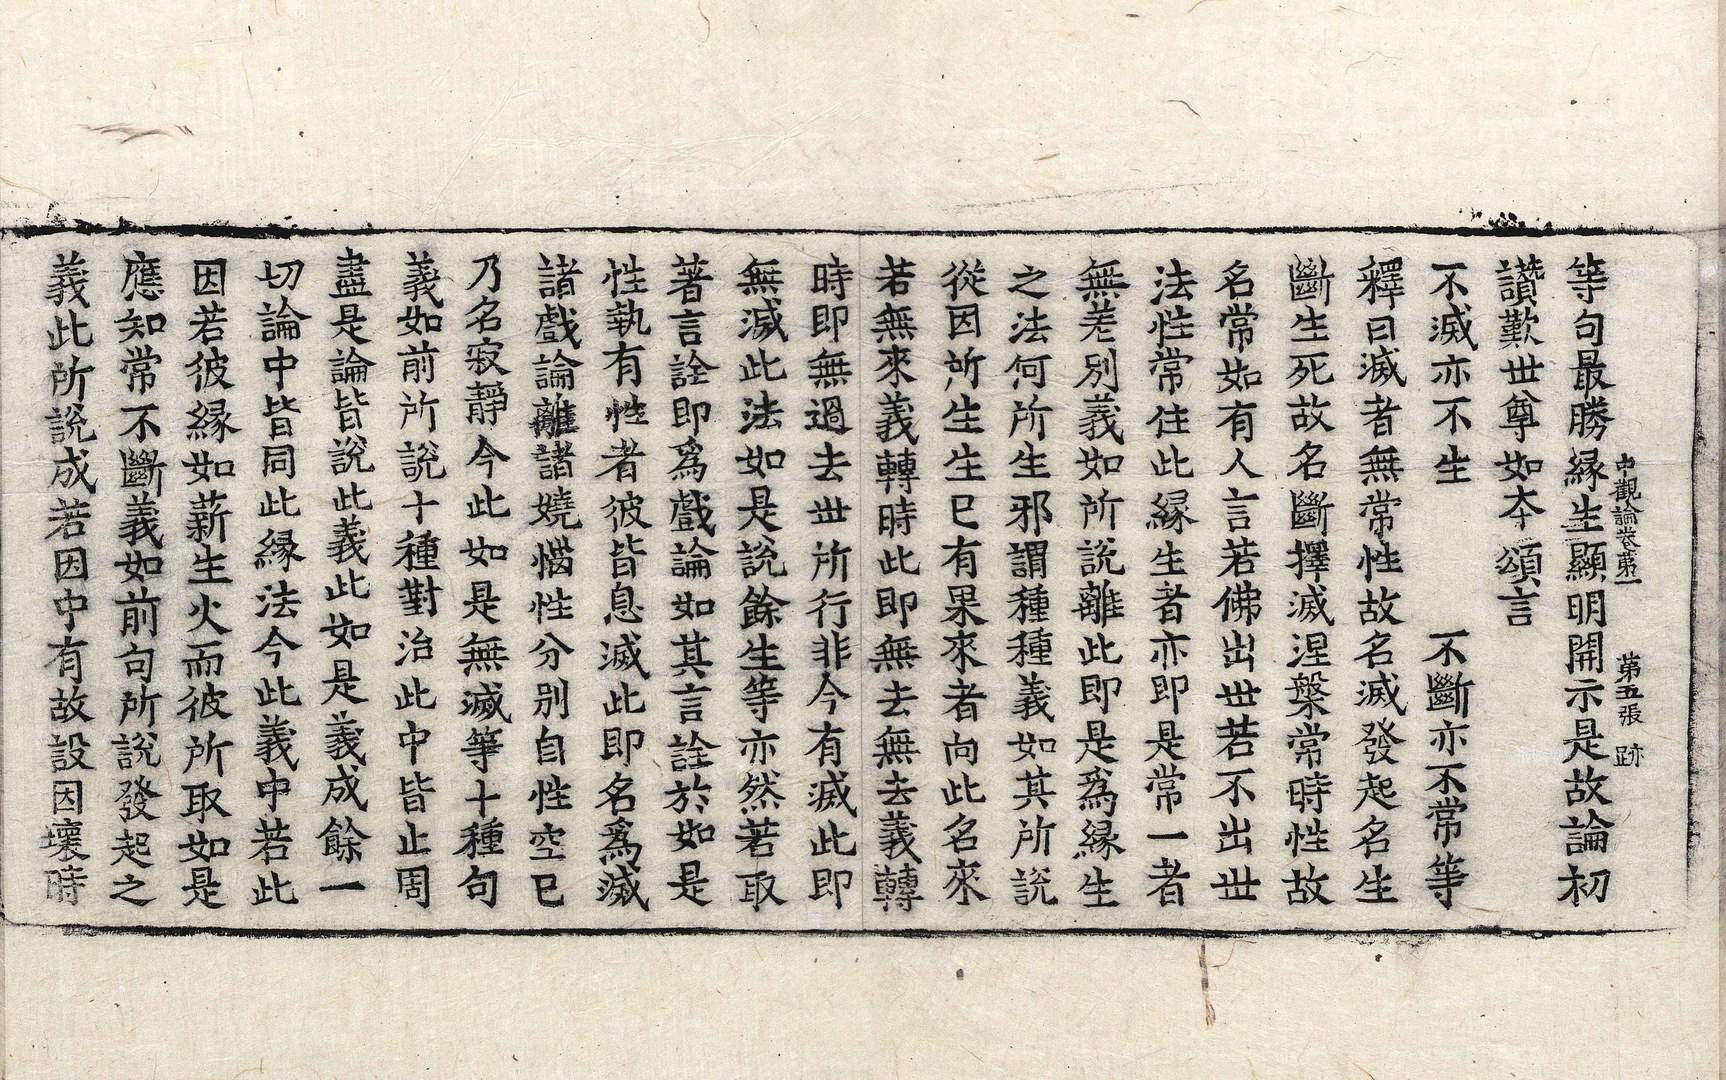 中觀論卷第一　第五張　跡
等句最勝縁生顯明開示是故論初
讚歎世尊如夲頌言
不滅亦不生　不斷亦不常等
釋曰滅者無常性故名滅發起名生
斷生死故名斷擇滅涅槃常時性故
名常如有人言若佛出世若不出世
法性常住此縁生者亦即是常一者
無差別義如所說離此即是爲縁生
之法何所生邪謂種種義如其所說
從因所生生已有果來者向此名來
若無來義轉時此即無去無去義轉
時即無過去世所行非今有滅此即
無滅此法如是說餘生等亦然若取
著言詮即爲戲論如其言詮於如是
性執有性者彼皆息滅此即名爲滅
諸戲論離諸嬈惱性分別自性空已
乃名寂靜今此如是無滅等十種句
義如前所說十種對治此中皆止周
盡是論皆說此義此如是義成餘一
切論中皆同此縁法今此義中若此
因若彼縁如薪生火而彼所取如是
應知常不斷義如前句所說發起之
義此所說成若因中有故設因壞時